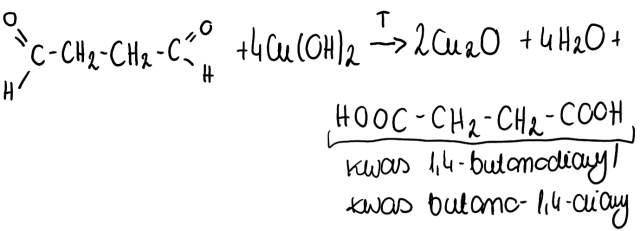 O=C(H)-CH₂-CH₂-C(H)=O +4Cu(OH)₂ —T→ 2Cu₂O +4H₂O+
HOOC-CH₂-CH₂-COOH
kwas 1,4-butanodiowy/
kwas butano-1,4-diowy